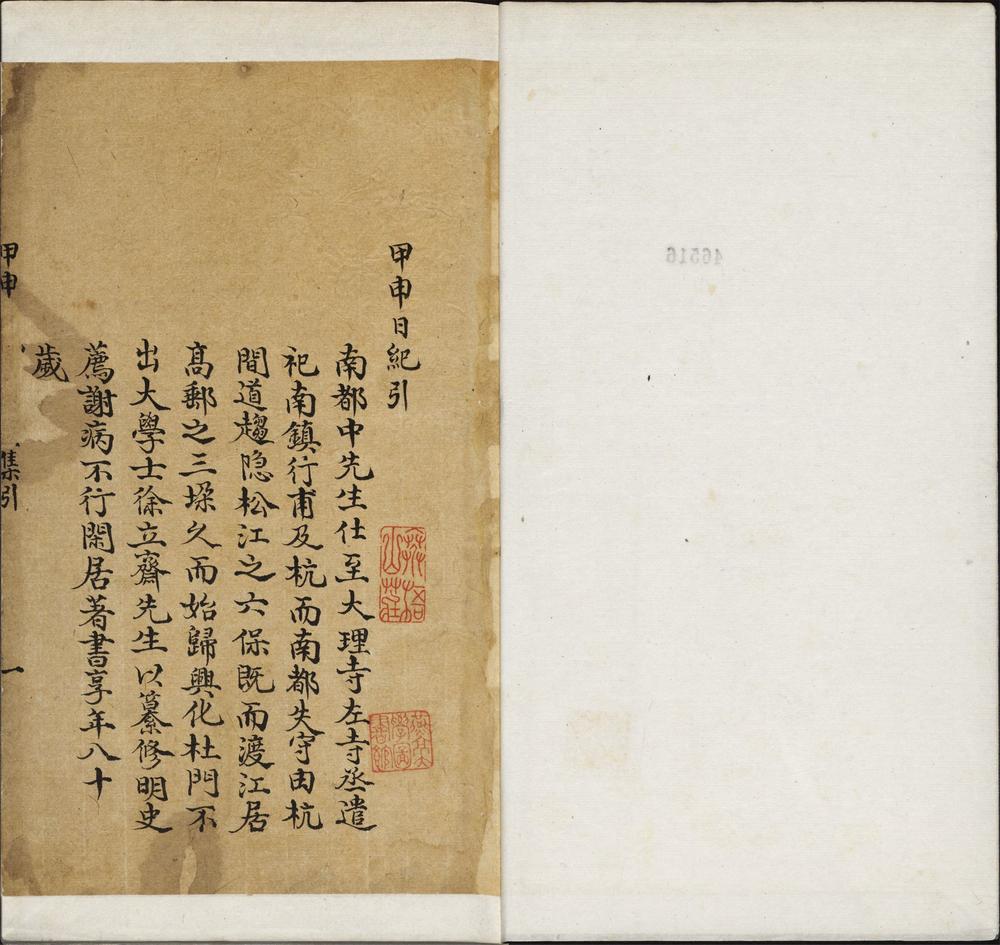 46516
甲申日紀引
南都中先生仕至大理寺左寺丞遣
祀南鎮行甫及杭而南都失守由杭
間道趨隐松江之六保既而渡江居
高郵之三垛久而始歸興化杜門不
出大學士徐立齋先生以纂修明史
薦謝病不行閑居著書享年八十
歲
甲申
集引
一